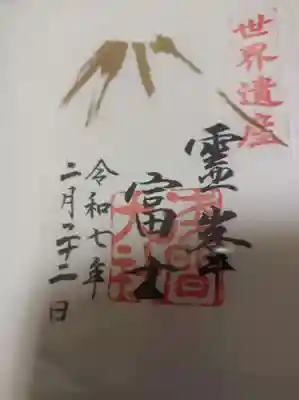 世界遺産
霊峯
富士
令和七年
二月二十二日